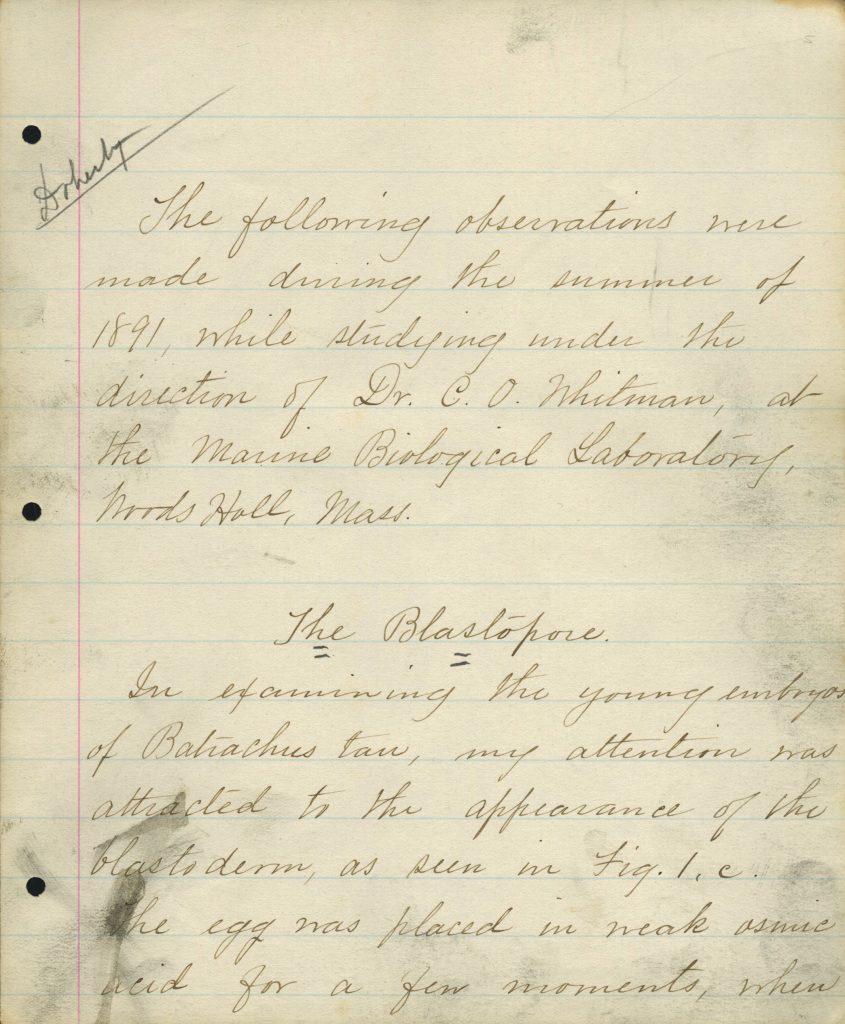 Doherty
The following observations were
made during the summer of
1891, while studying under the
direction of Dr. C. O. Whitman, at
the Marine Biological Laboratory,
Woods Holl, Mass.
The Blastopore.
In examining the young embryos
of Batrachus tau, my attention was
attracted to the appearance of the
blastoderm, as seen in Fig. 1, c.
The egg was placed in weak osmic
acid for a few moments, when